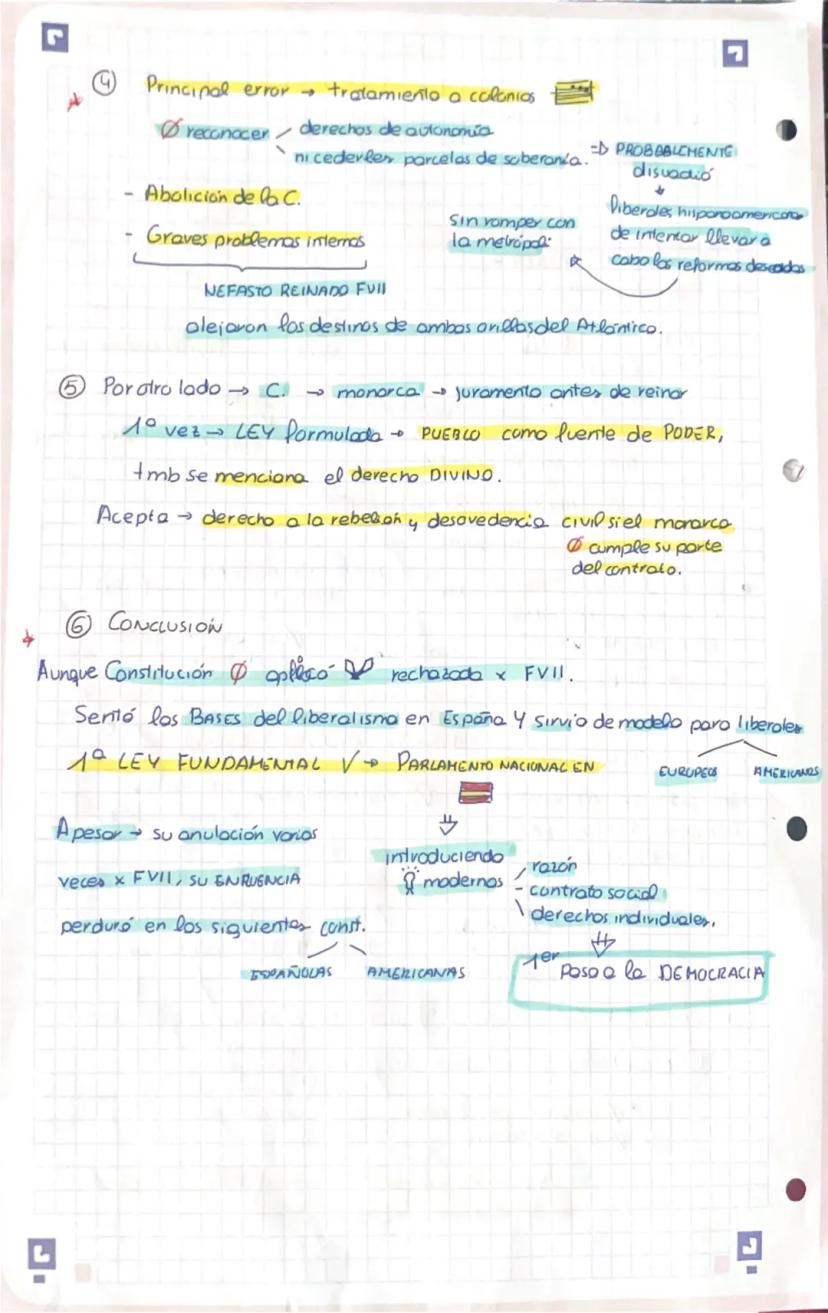 ④ Principal error → tratamiento a colonias
Ø reconocer derechos de autonomía
ni cederles parcelas de soberanía. => PROBABLEMENTE
disuadió
liberales hispanoamericanos
de intentar llevar a
cabo las reformas deseadas
sin romper con
la metrópoli
- Abolición de la C.
- Graves problemas internos
NEFASTO REINADO FVII
alejaron los destinos de ambas orillas del Atlántico.
⑤ Por otro lado → C. → monarca → juramento antes de reinar
1º vez → LEY formulada → PUEBLO como fuente de PODER,
tmb se menciona el derecho DIVINO.
Acepta → derecho a la rebelión y desovedencia civil si el monarca
Ø cumple su parte
del contrato.
⑥ CONCLUSIÓN
Aunque Constitución Ø aplicó rechazada x FVII.
Sentó las BASES del liberalismo en España Y sirvio de modelo para liberales
EUROPEOS AMERICANOS
1ª LEY FUNDAMENTAL V → PARLAMENTO NACIONAL EN
Apesar → su anulación varias
veces x FVII, SU ENFLUENCIA
perduró en las siguientes const.
ESPAÑOLAS AMERICANAS
introduciendo
modernas
razón
- contrato social
derechos individuales,
1er Paso a la DEMOCRACIA